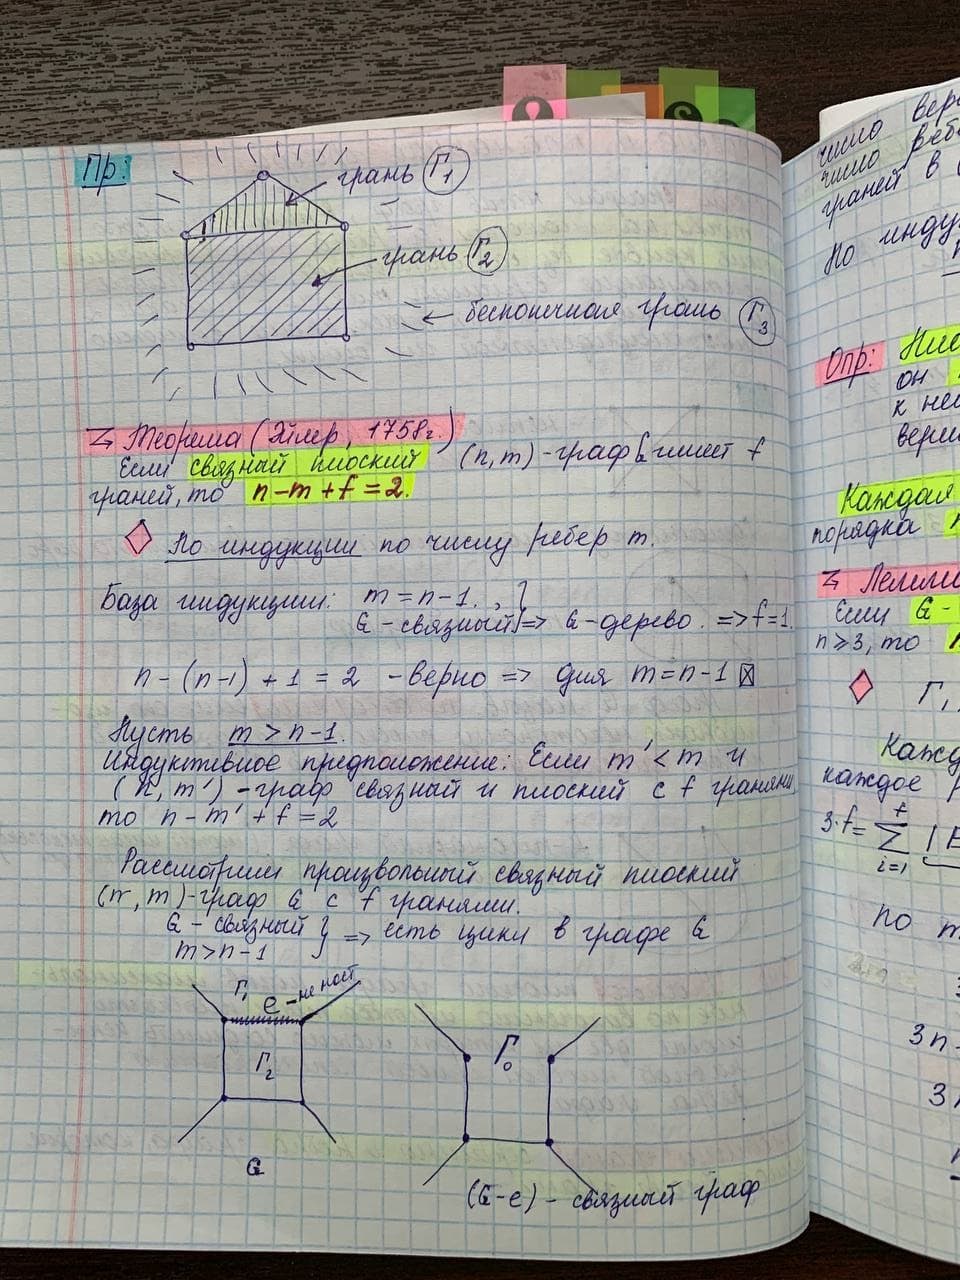 Пр:
грань Г1
грань Г2
← бесконечная грань Г3
Теорема (Эйлер, 1758г.)
Если связный плоский (n, m) - граф G имеет f
граней, то n-m+f=2.
По индукции по числу ребер m.
База индукции: m = n-1.
G - связный } => G - дерево. => f=1.
n - (n-1) + 1 = 2 - верно => для m = n-1
Пусть m > n-1.
Индуктивное предположение: Если m' < m и
(n, m') - граф связный и плоский с f гранями,
то n - m' + f = 2
Рассмотрим произвольный связный плоский
(n, m)-граф G с f гранями.
G - связный
m > n-1 } => есть цикл в графе G
Г1 e - не мост
Г2
G
Г0
(G-e) - связный граф
число
число
граней в
По
Опр:
он
к
Каждая
порядка
Если G -
n ≥ 3, то
Г,
каждое
3·f = Σ i=1 f |E
по m
3n -